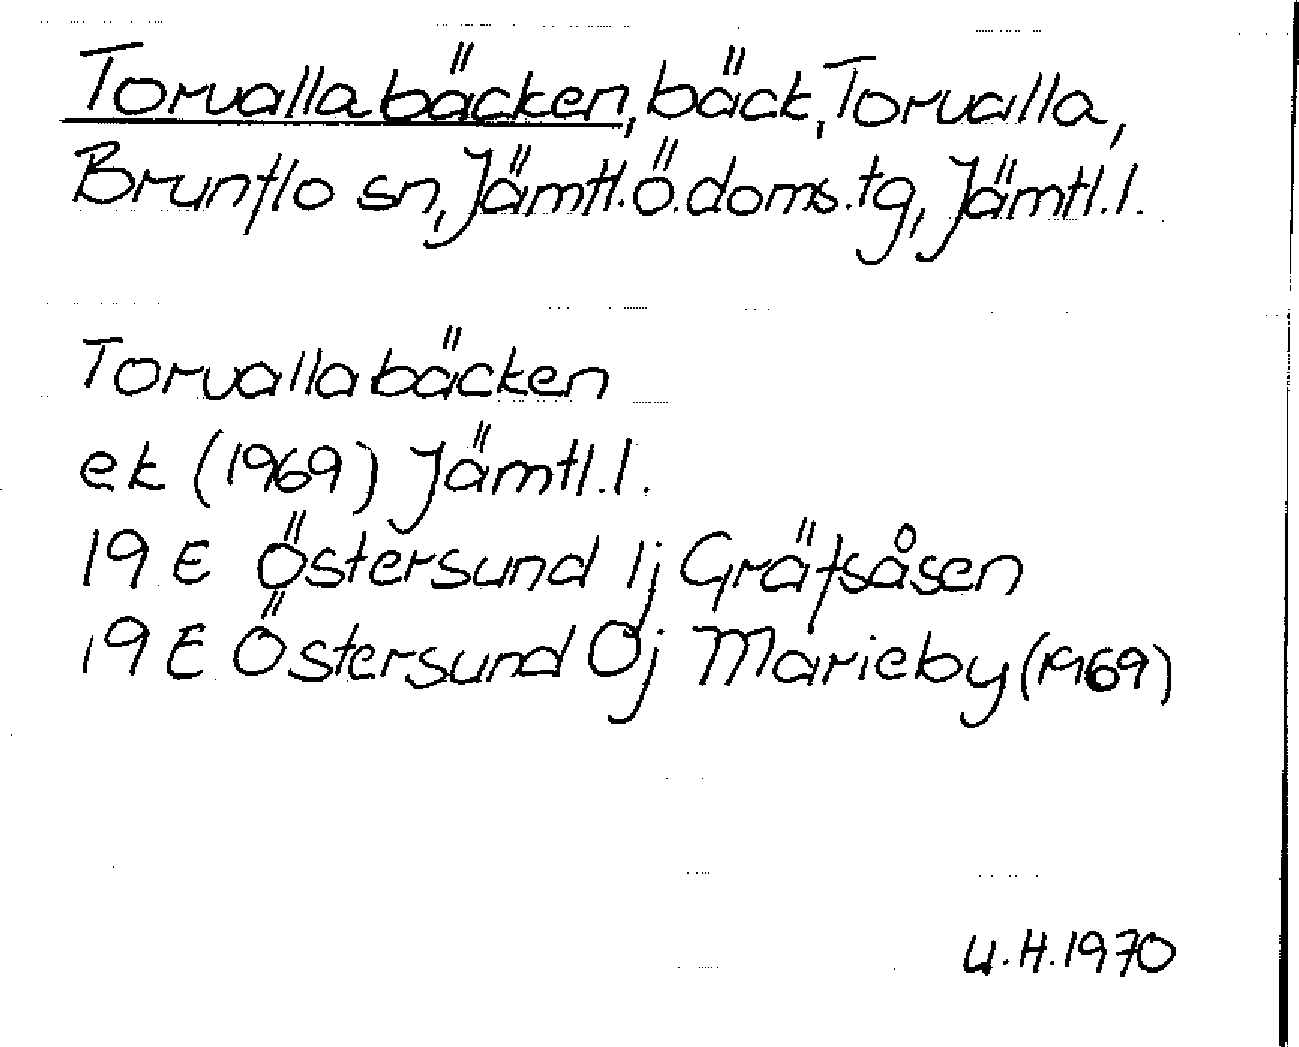 Torvallabäcken, bäck, Torvalla,
Brunflo sn, Jämtl.ö.doms.tg, Jämtl.l.
Torvallabäcken
ek (1969) Jämtl.l.
19 E Östersund 1j Gräfsåsen
19 E Östersund 0j Marieby (1969)
U.H.1970